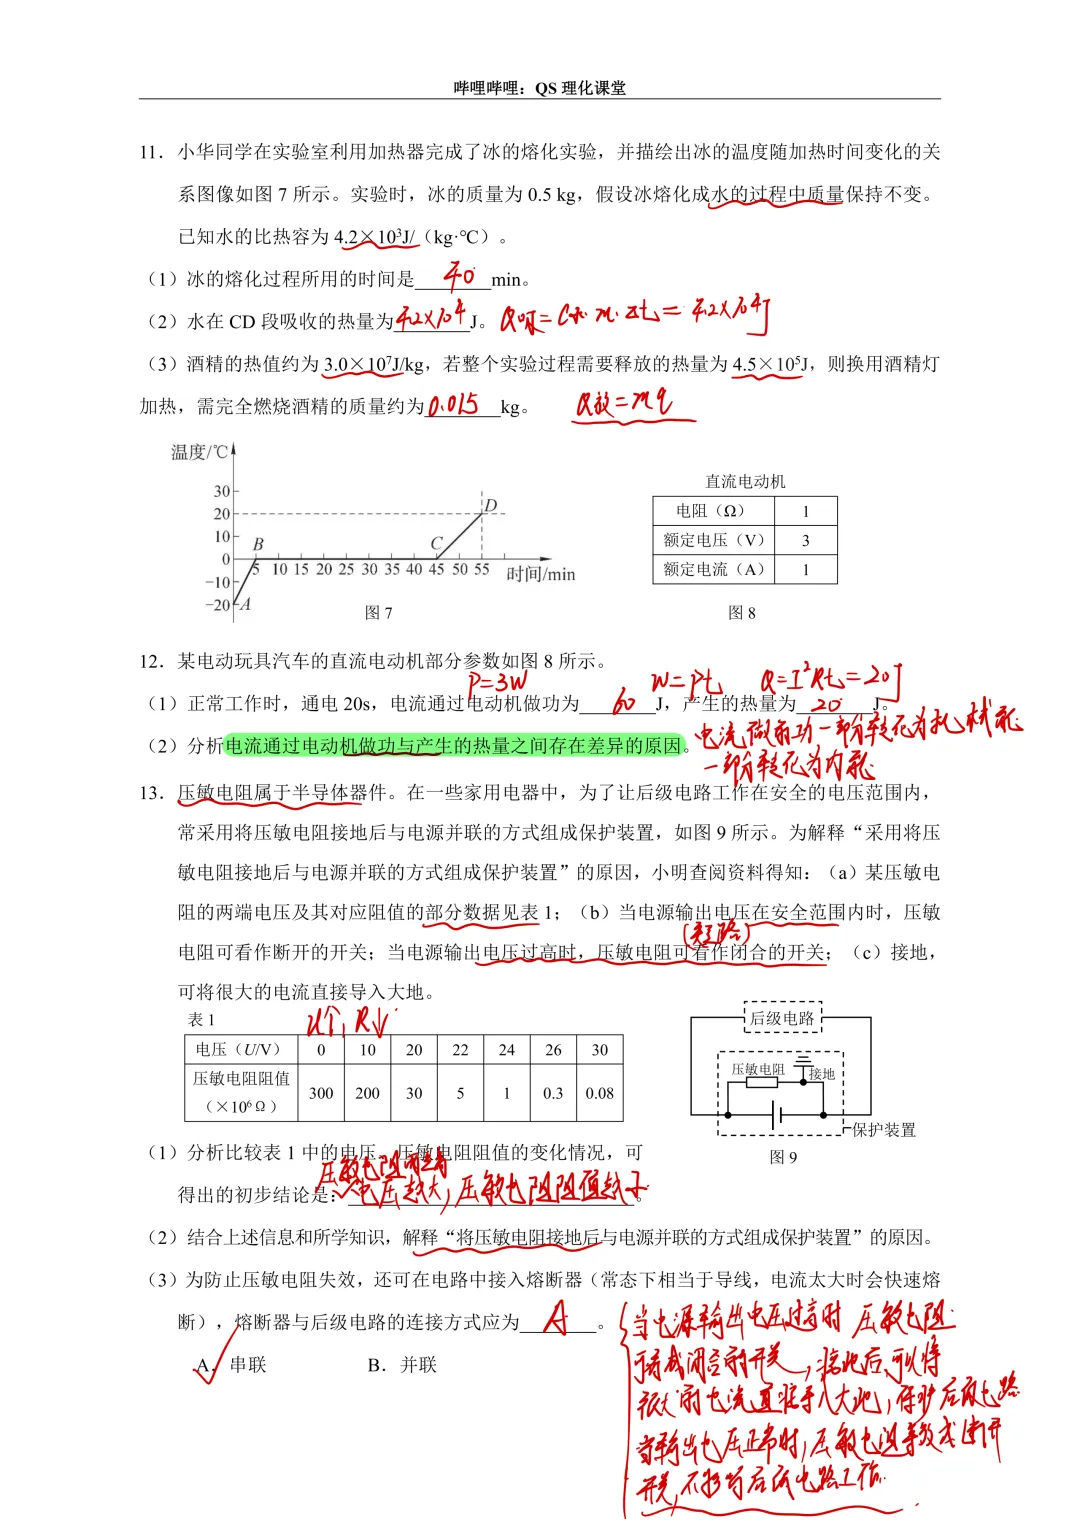 哔哩哔哩：QS 理化课堂
11．小华同学在实验室利用加热器完成了冰的熔化实验，并描绘出冰的温度随加热时间变化的关
系图像如图 7 所示。实验时，冰的质量为 0.5 kg，假设冰熔化成水的过程中质量保持不变。
已知水的比热容为 4.2×10³J/（kg·℃）。
（1）冰的熔化过程所用的时间是 40 min。
（2）水在 CD 段吸收的热量为 4.2×10⁴ J。 Q吸=C水·m·Δt=4.2×10⁴J
（3）酒精的热值约为 3.0×10⁷J/kg，若整个实验过程需要释放的热量为 4.5×10⁵J，则换用酒精灯
加热，需完全燃烧酒精的质量约为 0.015 kg。 Q放=mq
温度/℃
30
20
10
0
−10
−20
A
B
C
D
5 10 15 20 25 30 35 40 45 50 55 时间/min
图 7
直流电动机
电阻（Ω） 1
额定电压（V） 3
额定电流（A） 1
图 8
12．某电动玩具汽车的直流电动机部分参数如图 8 所示。
P=3W W=Pt Q=I²Rt=20J
（1）正常工作时，通电 20s，电流通过电动机做功为 60 J，产生的热量为 20 J。
（2）分析电流通过电动机做功与产生的热量之间存在差异的原因。
电流做的功一部分转化为机械能
一部分转化为内能
13．压敏电阻属于半导体器件。在一些家用电器中，为了让后级电路工作在安全的电压范围内，
常采用将压敏电阻接地后与电源并联的方式组成保护装置，如图 9 所示。为解释“采用将压
敏电阻接地后与电源并联的方式组成保护装置”的原因，小明查阅资料得知：（a）某压敏电
阻的两端电压及其对应阻值的部分数据见表 1；（b）当电源输出电压在安全范围内时，压敏
（短路）
电阻可看作断开的开关；当电源输出电压过高时，压敏电阻可看作闭合的开关；（c）接地，
可将很大的电流直接导入大地。
表 1
U个，R↓
电压（U/V） 0 10 20 22 24 26 30
压敏电阻阻值（×10⁶Ω） 300 200 30 5 1 0.3 0.08
后级电路
压敏电阻
接地
保护装置
图 9
（1）分析比较表 1 中的电压、压敏电阻阻值的变化情况，可
压敏电阻两端
得出的初步结论是：电压越大，压敏电阻阻值越小。
（2）结合上述信息和所学知识，解释“将压敏电阻接地后与电源并联的方式组成保护装置”的原因。
（3）为防止压敏电阻失效，还可在电路中接入熔断器（常态下相当于导线，电流太大时会快速熔
断），熔断器与后级电路的连接方式应为 A 。
A．串联 B．并联
当电源输出电压过高时 压敏电阻
可看成闭合的开关，接地后，可以将
很大的电流直接导入大地，保护后级电路
当输出电压正常时，压敏电阻等效成断开
开关，不影响后级电路工作